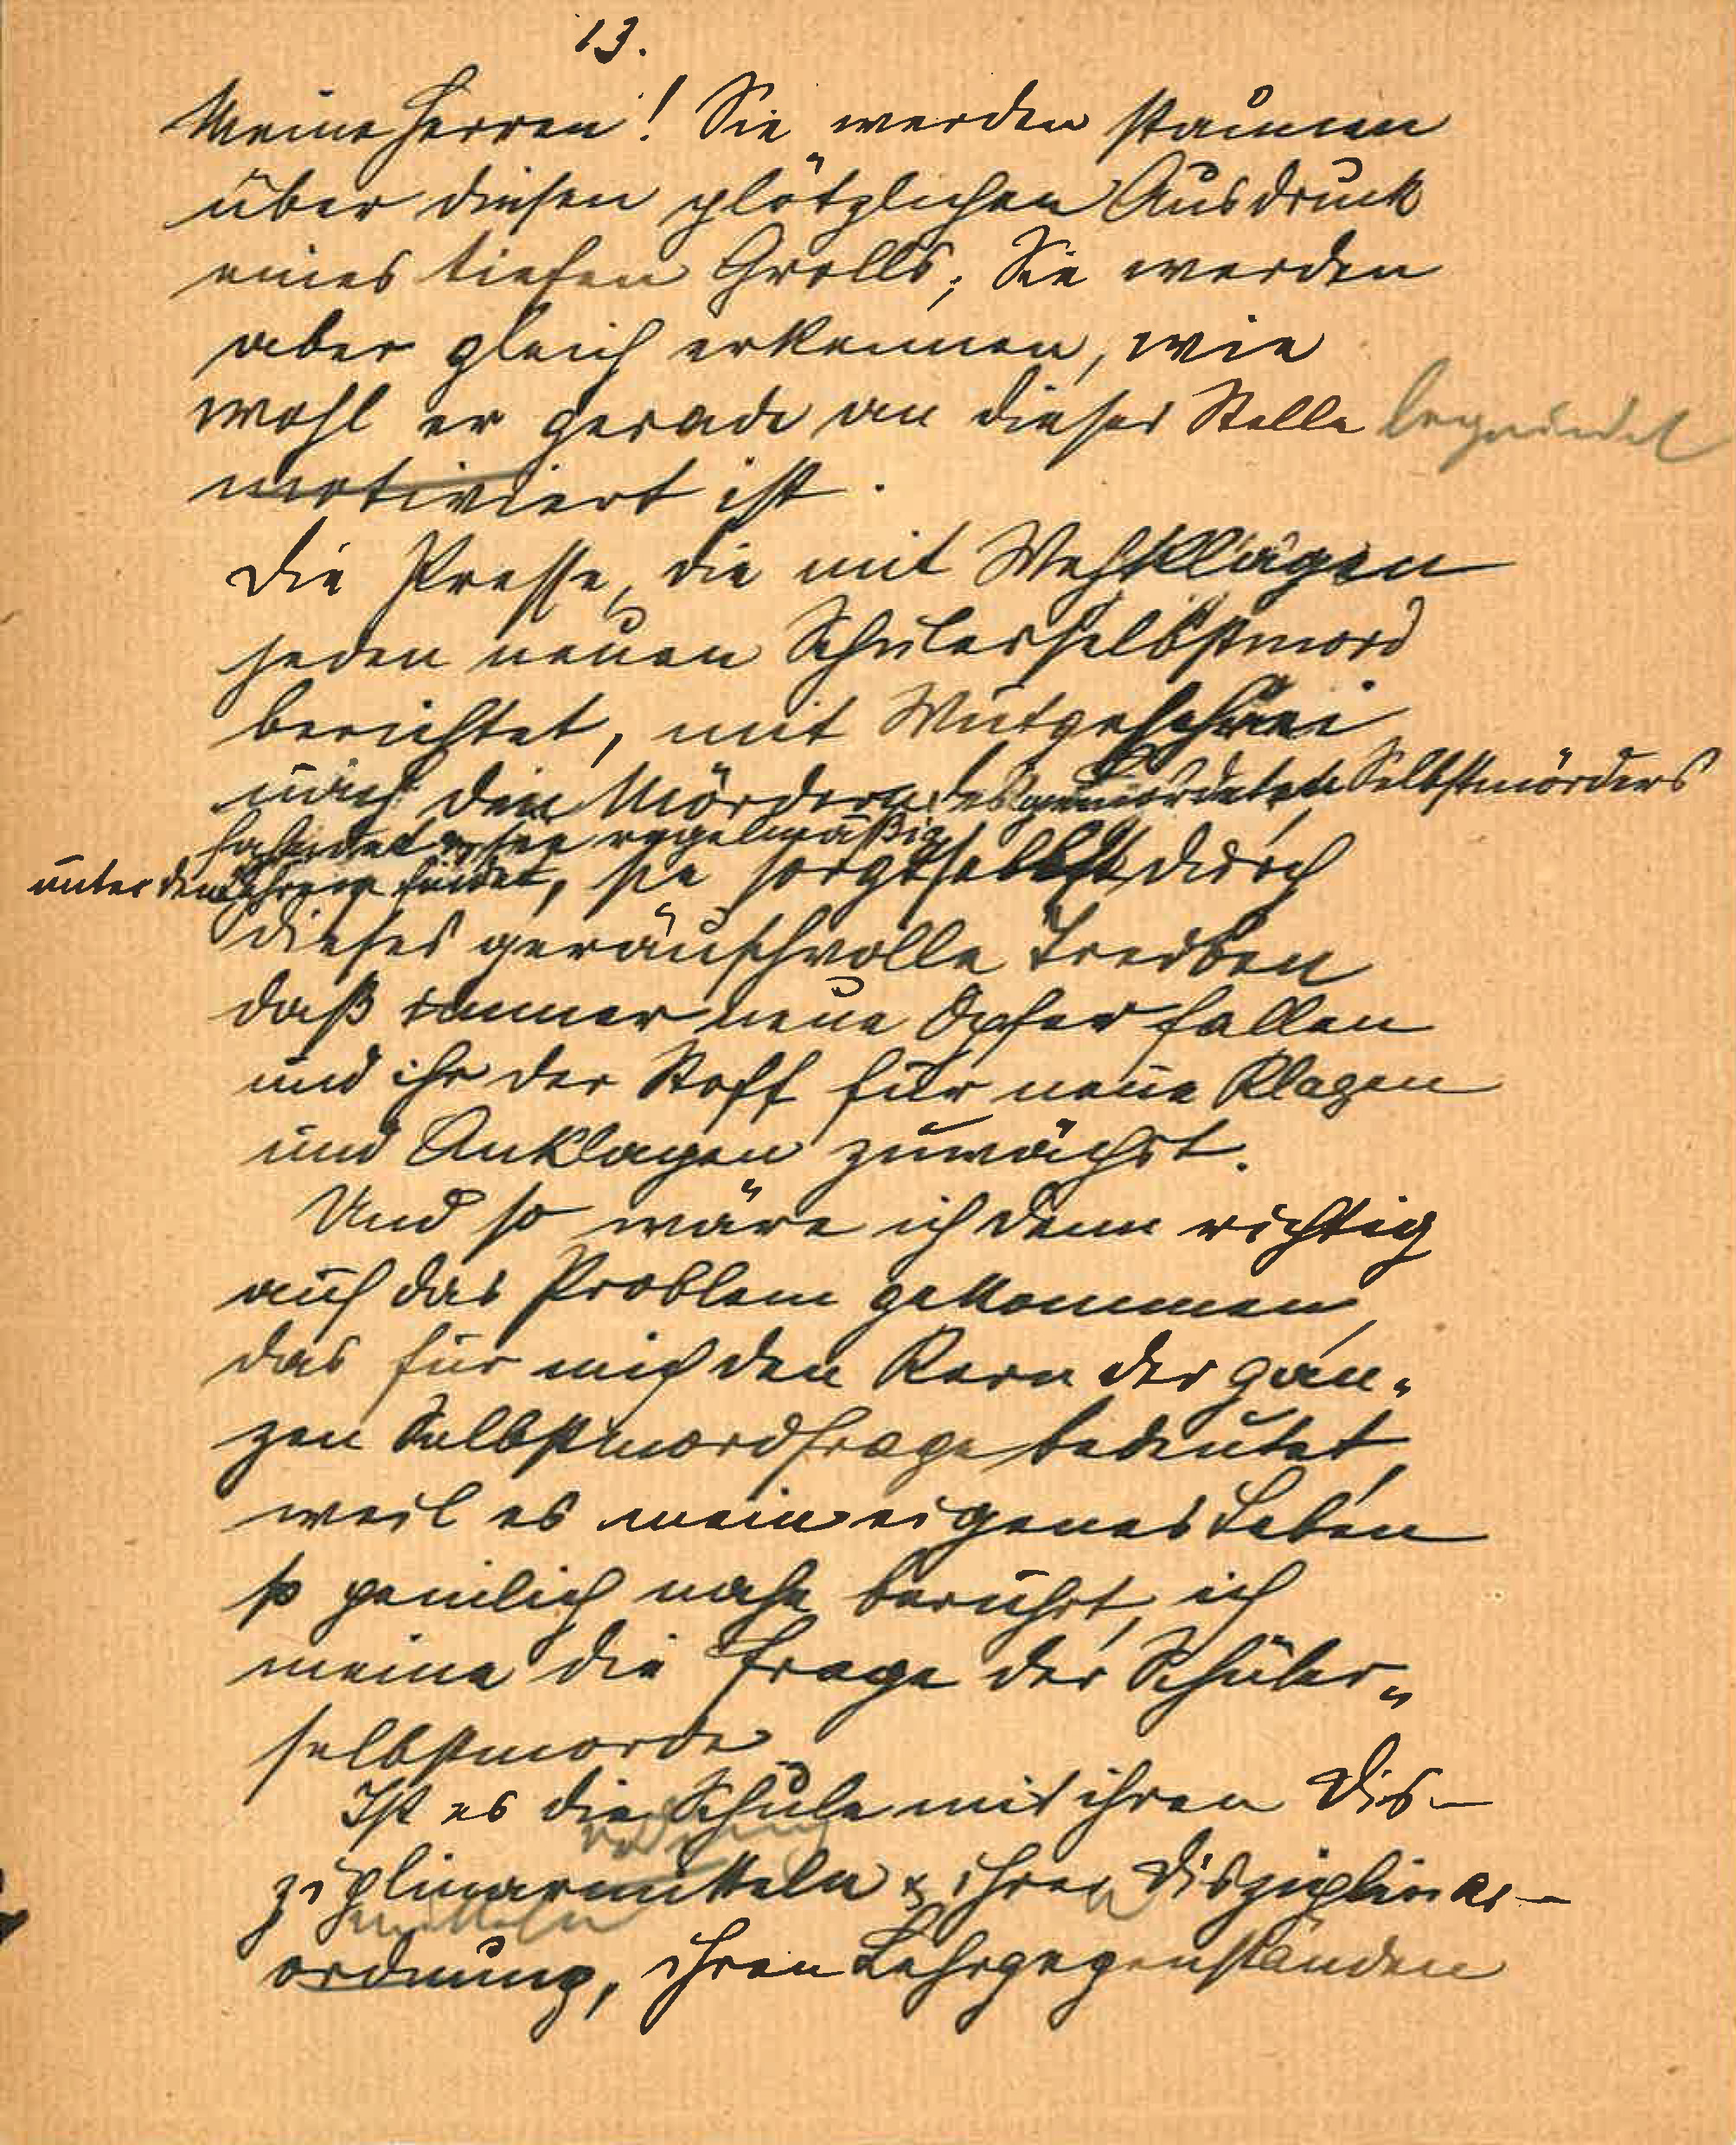 13.
Meine Herren! Sie werden staunen
über diesen plötzlichen Ausdruck
eines tiefen Grolls; Sie werden
aber gleich erkennen, wie
wohl er gerade an dieser Stelle begründet
motiviert ist.
Die Presse, die mit Wehklagen
jeden neuen Schülerselbstmord
berichtet, mit Wutgeschrei
nach den Mördern des gemordeten Selbstmörders
fahndet, sie regelmäßig
unter den Lehrern findet, sie sorgt selbst durch
dieses geräuschvolle Treiben
daß immer neue Opfer fallen
und ihr der Stoff für neue Klagen
und Anklagen zuwächst.
Und so wäre ich denn richtig
auf das Problem gekommen,
das für mich den Kern der gan-
zen Selbstmordfrage bedeutet,
weil es mein eigenes Leben
so peinlich nahe berührt, ich
meine die Frage der Schüler-
selbstmorde
Ist es die Schule mit ihren Dis-
ordnung
ziplinarmitteln & ihrer Disziplinar-
mitteln
ordnung, ihren Lehrgegenständen